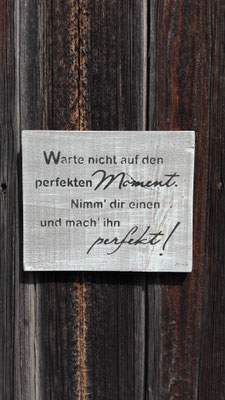 Warte nicht auf den
perfekten Moment.
Nimm' dir einen
und mach' ihn
perfekt!